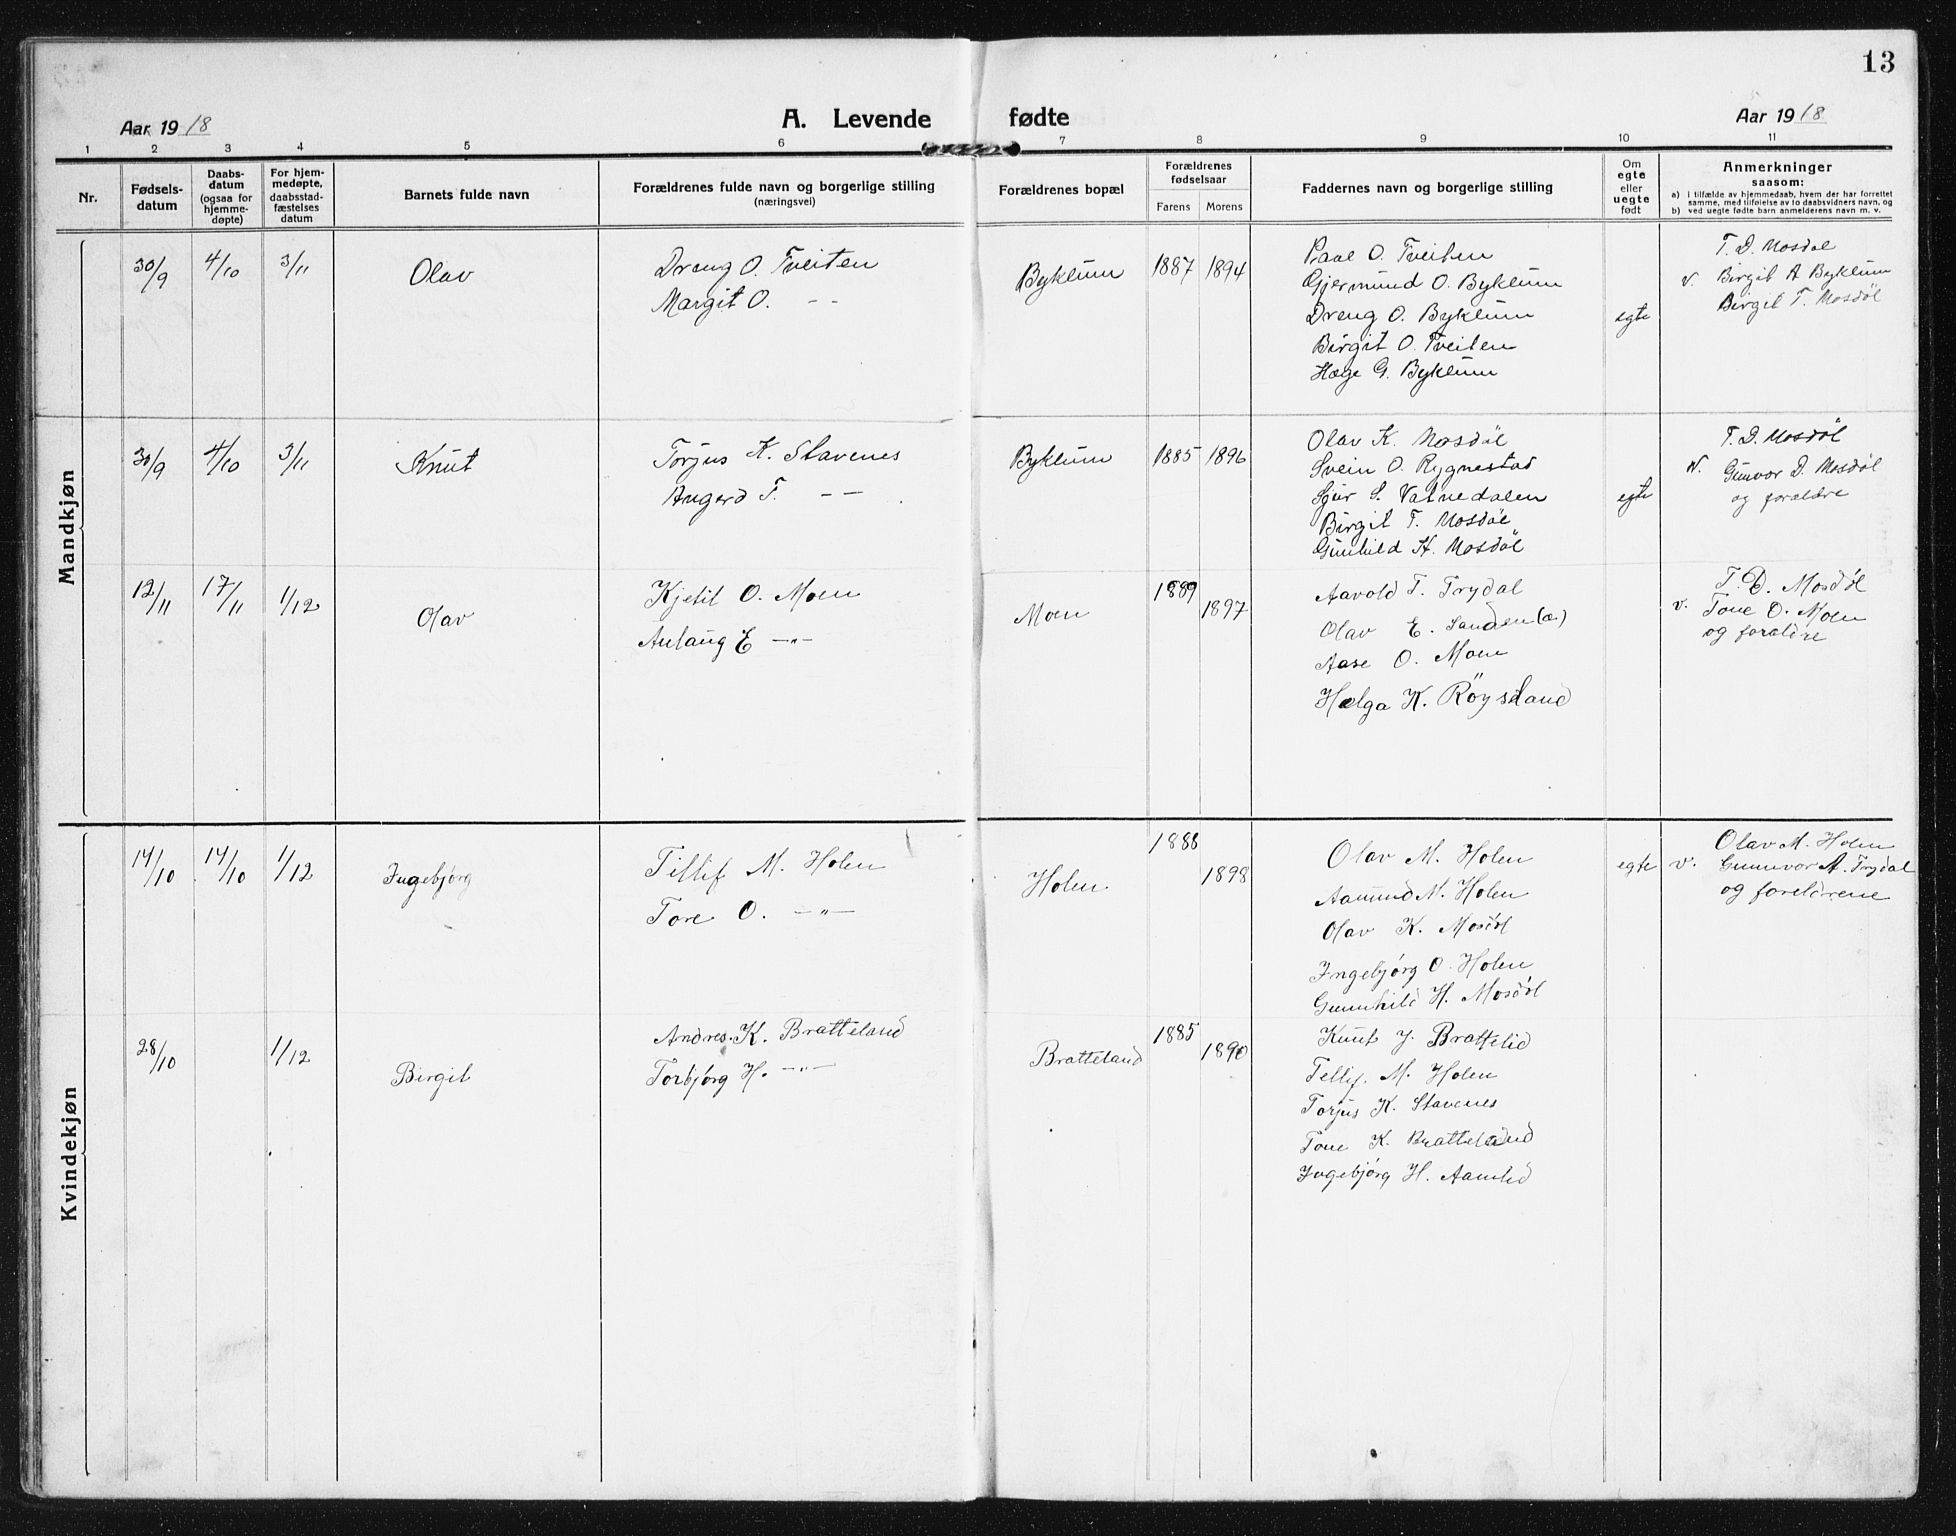 13
Aar 1918
A. Levende fødte
Aar 1918
1 2 3 4 5 6 7 8 9 10 11
Nr.
Fødsels-
datum
Daabs-
datum
(ogsaa for
hjemme-
døpte)
For hjem-
medøpte,
daabsstad-
fæstelses
datum
Barnets fulde navn
Forældrenes fulde navn og borgerlige stilling
(næringsvei)
Forældrenes bopæl
Forældrenes
fødselsaar
Farens Morens
Faddernes navn og borgerlige stilling
Om
egte
eller
uegte
født
Anmerkninger
saasom:
a) i tilfælde av hjemmedaab, hvem der har forrettet
samme, med tilføielse av to daabsvidners navn, og
b) ved uegte fødte barn anmelderens navn m. v.
Mandkjøn
30/9 4/10 3/11 Olav
Dreng O. Tveiten
Margit O. - -
Byklum 1887 1894
Paal O. Tveiten
Gjermund O. Byklum
Dreng O. Byklum
Birgit O. Tveiten
Hæge G. Byklum
egte
T. D. Mosdøl
v. Birgit A Byklum
Birgit T. Mosdøl
30/9 4/10 3/11 Knut
Torjus K. Stavenes
Angerd T. - -
Byklum 1885 1896
Olav K. Mosdøl
Svein O. Rygnestad
Sjur S. Vatnedalen
Birgit T. Mosdøl
Gunhild H. Mosdøl
egte
T. D. Mosdøl
v. Gunvor D. Mosdøl
og forældre
12/11 17/11 1/12 Olav
Kjetil O. Moen
Aulaug E -"-
Moen 1889 1897
Aavold T. Trydal
Olav E. Sanden (æ)
Aase O. Moen
Helga K. Röysland
T. D. Mosdøl
v. Tone O. Moen
og foreldre
Kvindekjøn
14/10 14/10 1/12 Ingebjørg
Tillif M. Holen
Tore O. -"-
Holen 1888 1898
Olav M. Holen
Aamund M. Holen
Olav K. Mosdöl
Ingebjørg O. Holen
Gunnhild H. Mosdöl
egte
Olav M. Holen
v. Gunnvor A. Trydal
og foreldrene
28/10 1/12 Birgit
Andres K. Bratteland
Torbjørg H. -"-
Bratteland 1885 1890
Knut J. Brattelid
Tellif M. Holen
Torjus K. Stavenes
Tone K. Bratteland
Ingebjørg H. Aamlid